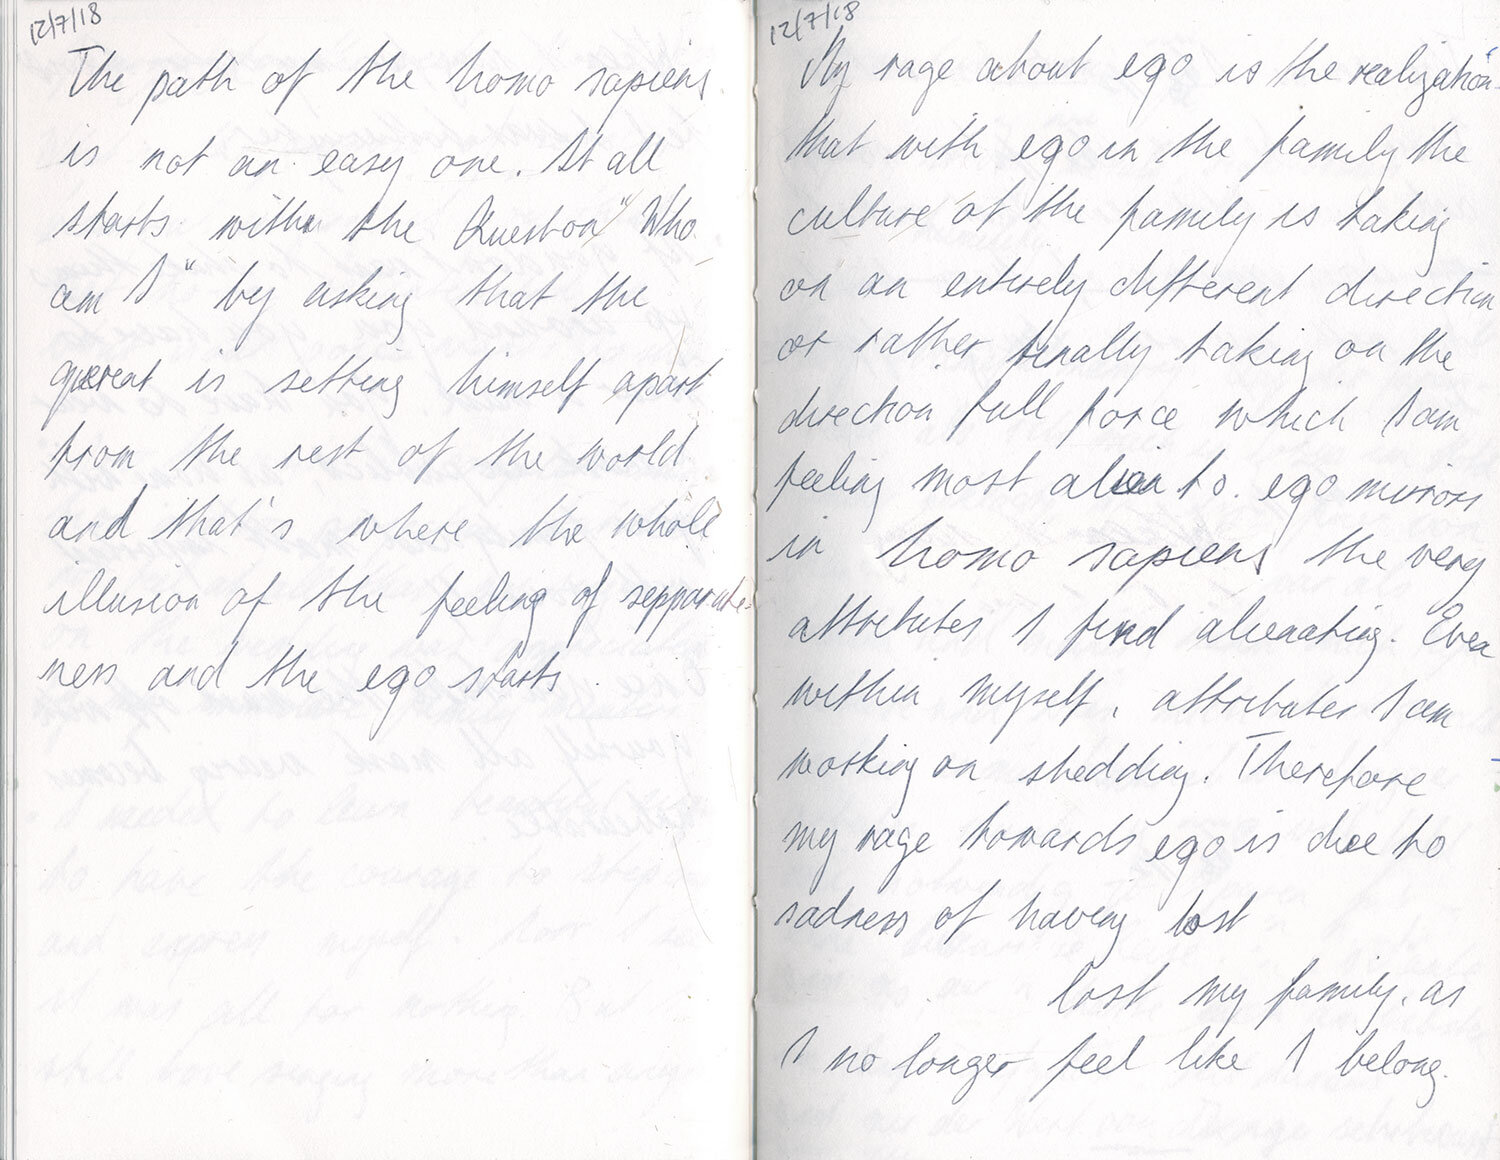 12/7/18
The path of the homo sapiens
is not an easy one. It all
starts with the Question "Who
am I" by asking that the
querent is setting himself apart
from the rest of the world
and that's where the whole
illusion of the feeling of sepparate-
ness and the ego starts.
12/7/18
My rage about ego is the realization
that with ego in the family the
culture of the family is taking
on an entirely different direction
or rather finally taking on the
direction full force which I am
feeling most alien to. ego mirrors
in homo sapiens the very
attributes I find alienating. Even
within myself, attributes I am
working on shedding. Therefore
my rage towards ego is due to
sadness of having lost
lost my family, as
I no longer feel like I belong.